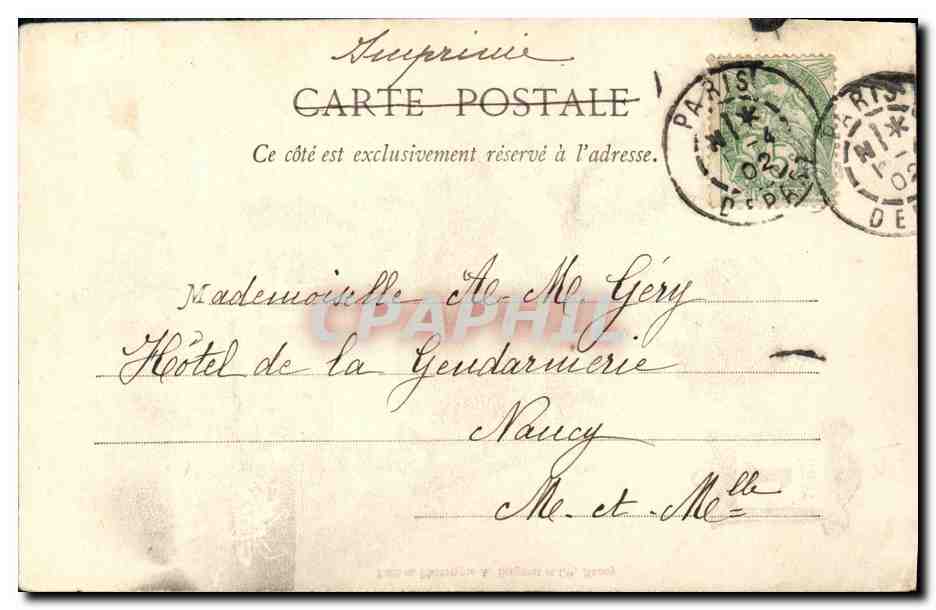 Imprimé
CARTE POSTALE
Ce côté est exclusivement réservé à l'adresse.
PARIS
1 * 
4
02
DEPART
PARIS
1 *
02
DEP
Mademoiselle A. M. Géry
CPAPHIL
Hôtel de la Gendarmerie
Nancy
M. et Mlle